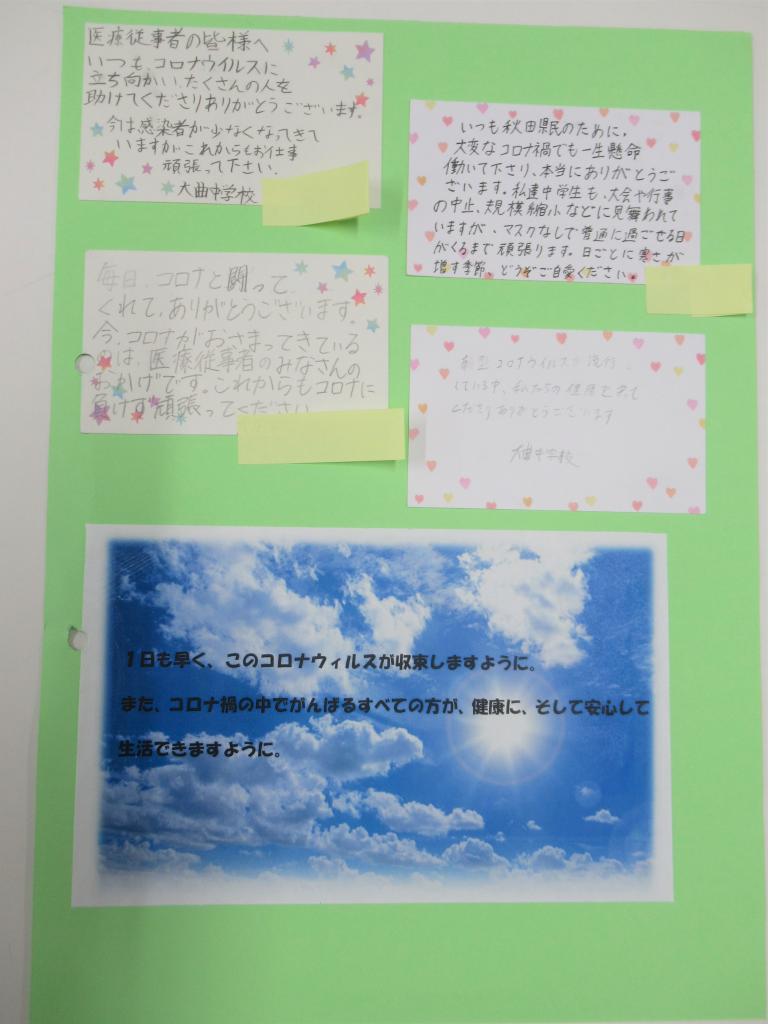 医療従事者の皆様へ
いつも、コロナウイルスに
立ち向かい、たくさんの人を
助けてくださりありがとうございます。
今は感染者が少なくなってきて
いますがこれからもお仕事
頑張って下さい。
大曲中学校
いつも秋田県民のために、
大変なコロナ禍でも一生懸命
働いて下さり、本当にありがとうご
ざいます。私達中学生も、大会や行事
の中止、規模縮小などに見舞われて
いますが、マスクなしで普通に過ごせる日
がくるまで頑張ります。日ごとに寒さが
増す季節、どうぞご自愛ください。
毎日、コロナと闘って
くれて、ありがとうございます。
今、コロナがおさまってきている
のは、医療従事者のみなさんの
おかげです。これからもコロナに
負けず頑張ってください
新型コロナウイルスが流行
している中、私たちの健康を守って
くださりありがとうございます
大曲中学校
1日も早く、このコロナウィルスが収束しますように。
また、コロナ禍の中でがんばるすべての方が、健康に、そして安心して
生活できますように。